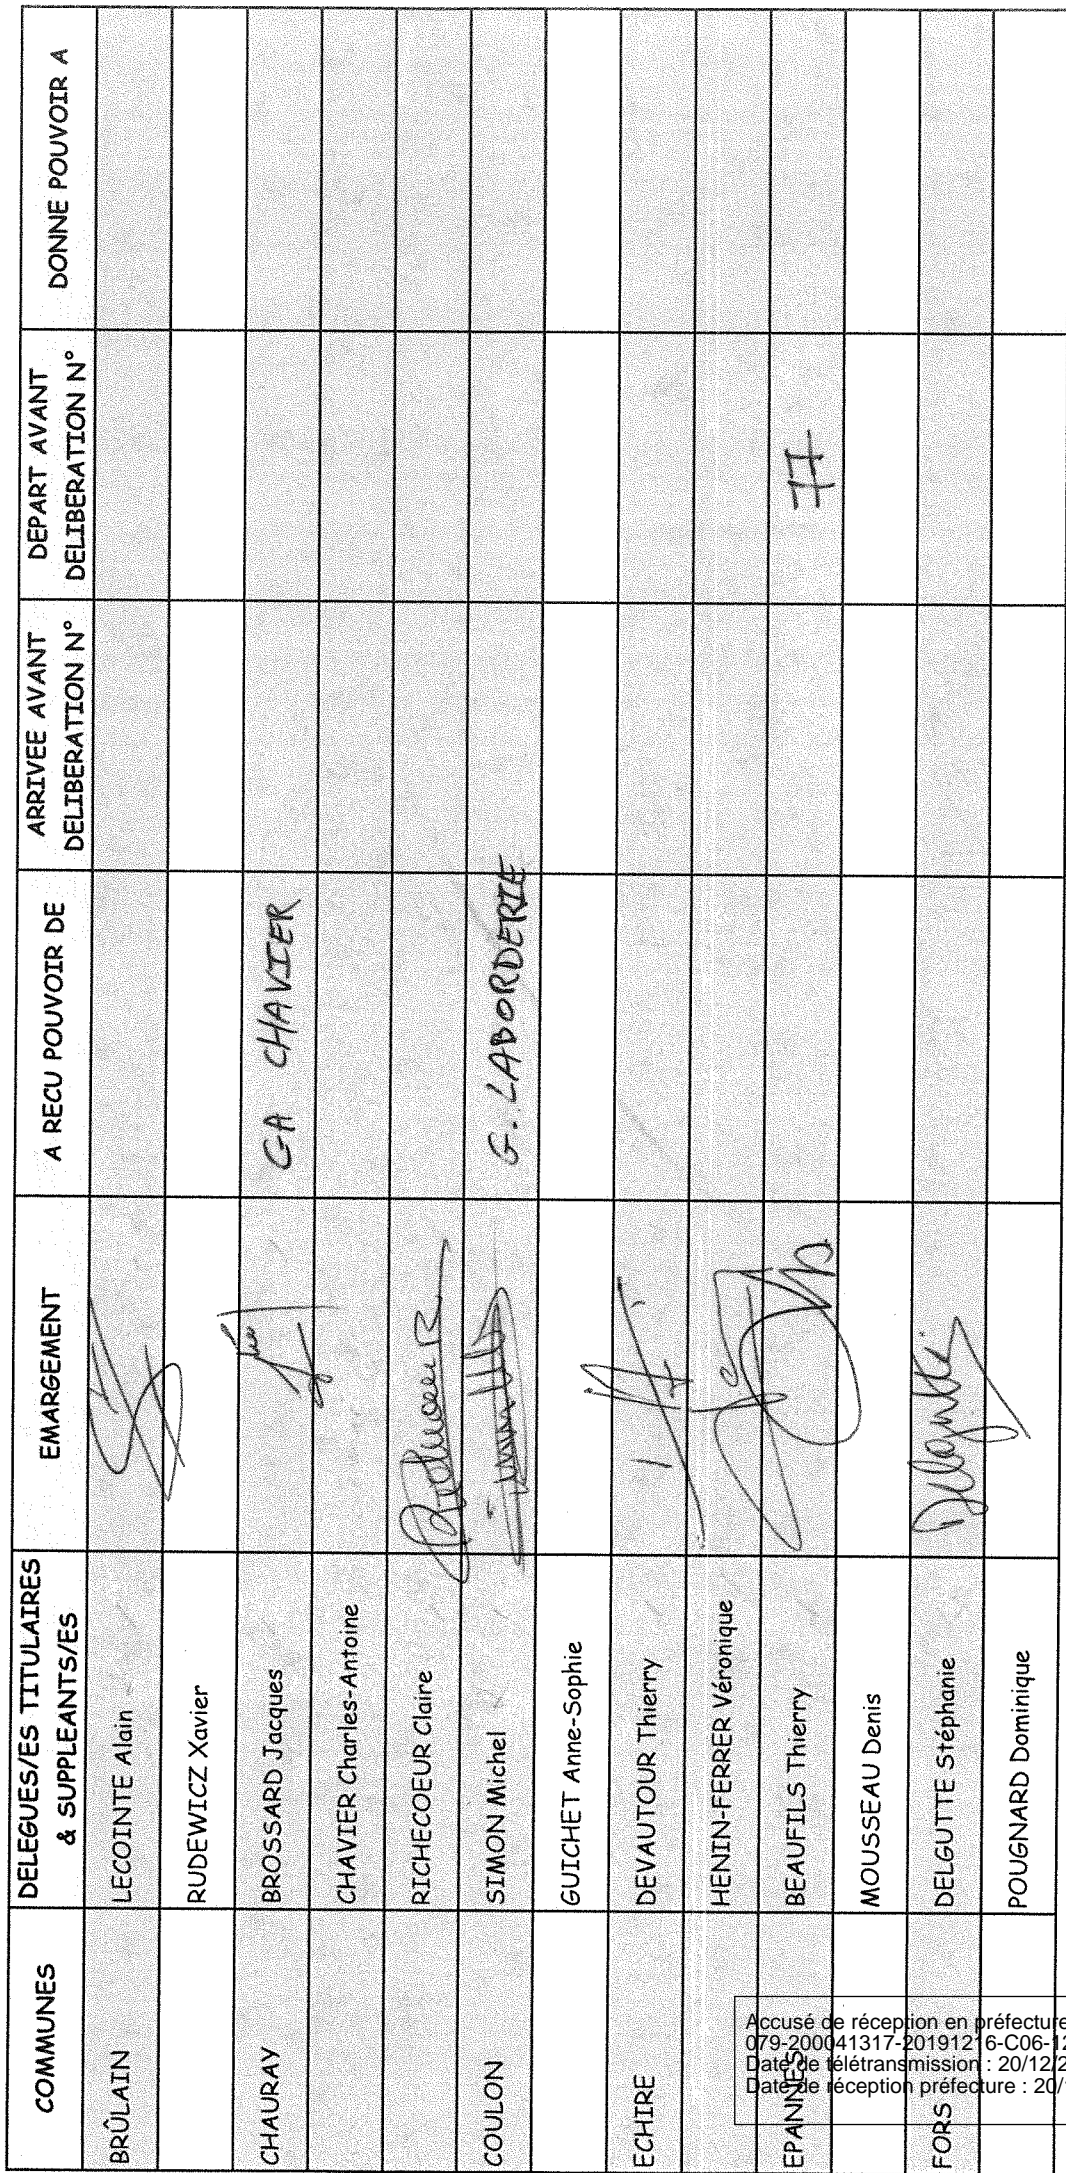 COMMUNES DELEGUES/ES TITULAIRES & SUPPLEANTS/ES EMARGEMENT A RECU POUVOIR DE ARRIVEE AVANT DELIBERATION N° DEPART AVANT DELIBERATION N° DONNE POUVOIR A
BRÛLAIN LECOINTE Alain
RUDEWICZ Xavier
CHAURAY BROSSARD Jacques CA CHAVIER
CHAVIER Charles-Antoine
RICHECOEUR Claire
COULON SIMON Michel G. LABORDERIE
GUICHET Anne-Sophie
ECHIRE DEVAUTOUR Thierry
HENIN-FERRER Véronique
EPANNES BEAUFILS Thierry 77
MOUSSEAU Denis
FORS DELGUTTE Stéphanie Delgutte
POUGNARD Dominique
Accusé de réception en préfecture
079-200041317-20191216-C06-12
Date de télétransmission : 20/12/2
Date de réception préfecture : 20/